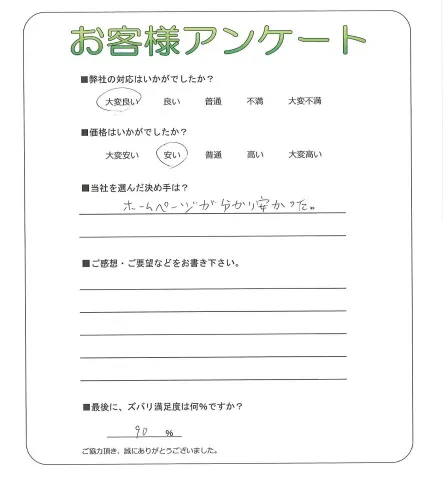 お客様アンケート
■弊社の対応はいかがでしたか?
大変良い 良い 普通 不満 大変不満
■価格はいかがでしたか?
大変安い 安い 普通 高い 大変高い
■当社を選んだ決め手は?
ホームページが分かり安かった。
■ご感想・ご要望などをお書き下さい。
■最後に、ズバリ満足度は何%ですか?
90 %
ご協力頂き、誠にありがとうございました。